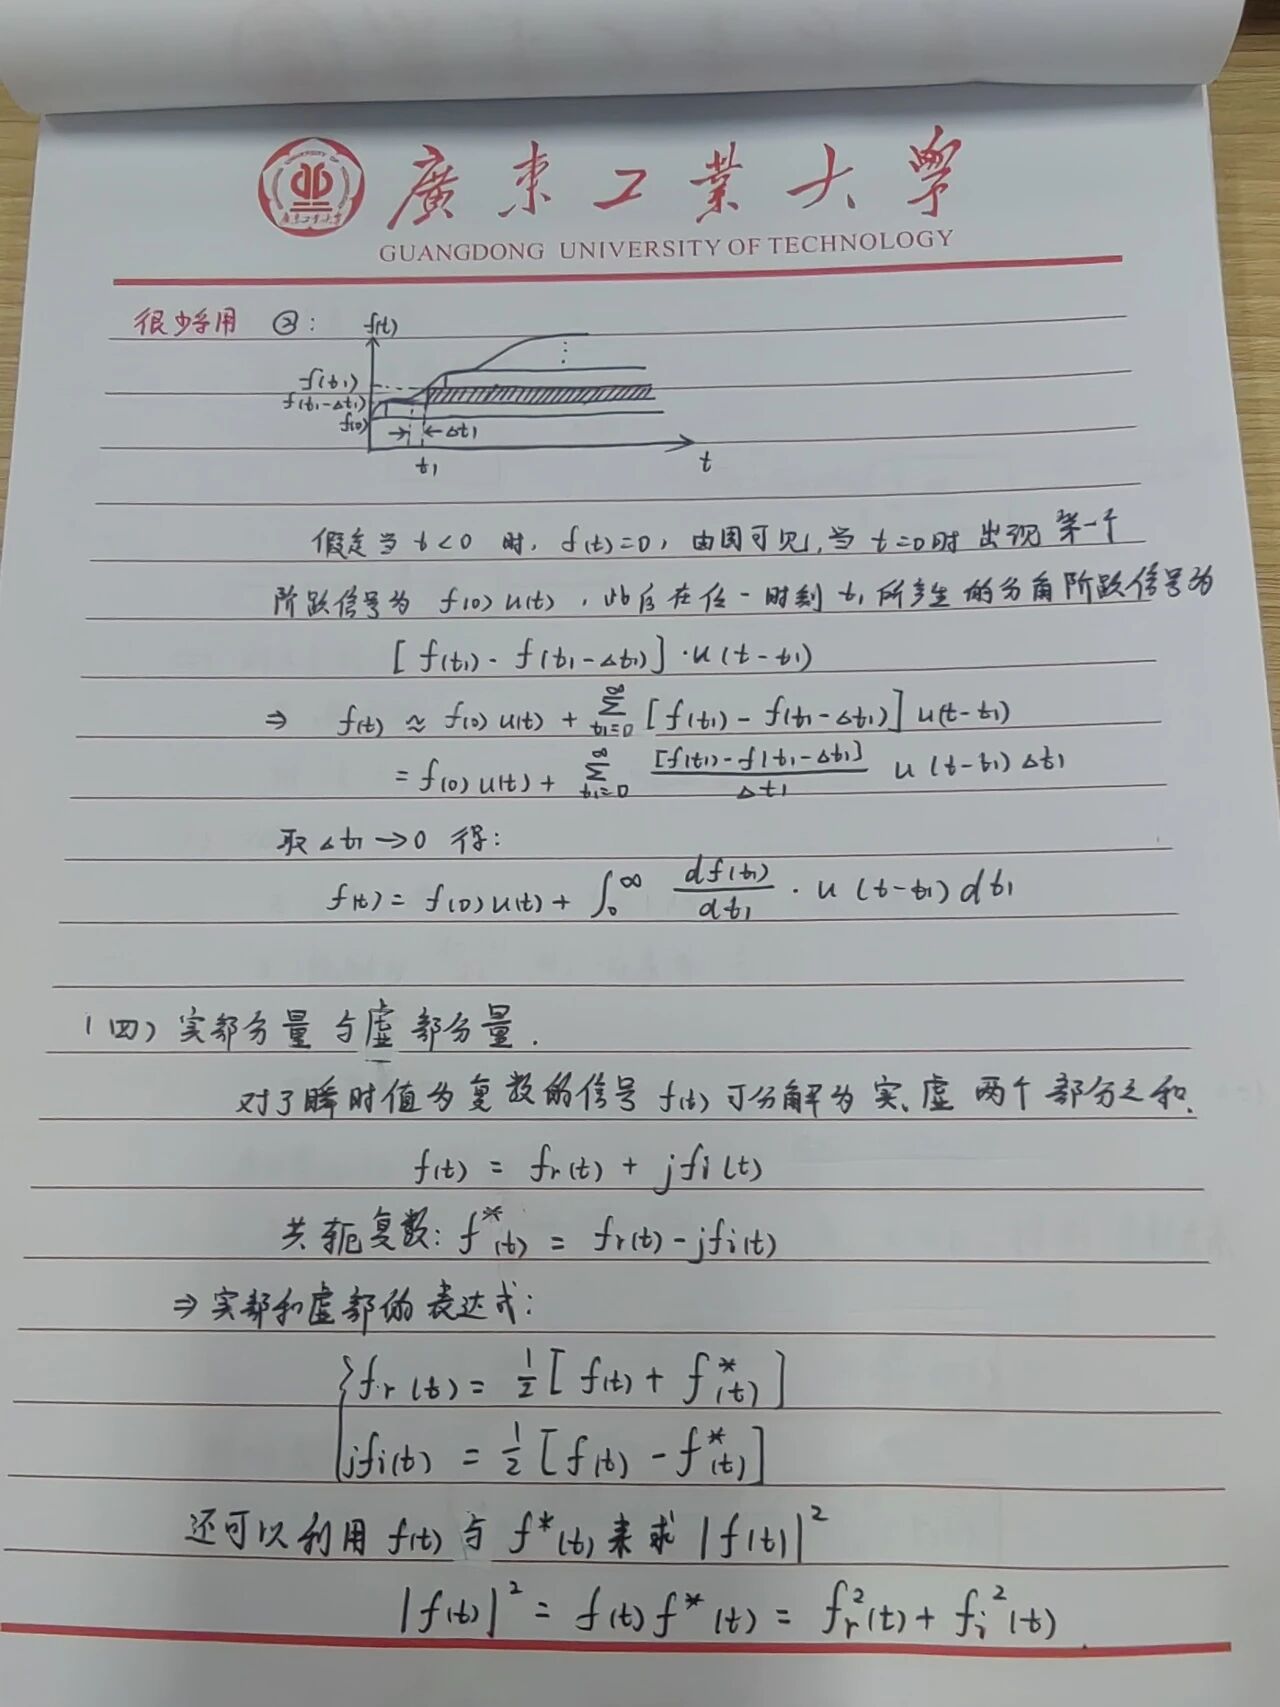 廣東工業大學
GUANGDONG UNIVERSITY OF TECHNOLOGY
很少采用 ②:
f(t)
f(t₁)
f(t₁-Δt₁)
f(0)
Δt₁
t₁
t
假定当 t<0 时, f(t)=0, 由图可见, 当 t=0时 出现 第一个
阶跃信号为 f(0)u(t), 此后在任一时刻 t₁ 所产生的分角阶跃信号为
[f(t₁)-f(t₁-Δt₁)]·u(t-t₁)
⇒ f(t) ≈ f(0)u(t) + ∑_{t₁=0}^{∞} [f(t₁)-f(t₁-Δt₁)] u(t-t₁)
= f(0)u(t) + ∑_{t₁=0}^{∞} [f(t₁)-f(t₁-Δt₁)]/Δt₁ u(t-t₁)Δt₁
取 Δt₁→0 得:
f(t) = f(0)u(t) + ∫₀^∞ df(t₁)/dt₁ · u(t-t₁)dt₁
(四) 实部分量与虚部分量.
对于瞬时值为复数的信号 f(t) 可分解为实、虚两个部分之和.
f(t) = fr(t) + jfi(t)
共轭复数: f*(t) = fr(t) - jfi(t)
⇒ 实部和虚部的表达式:
fr(t) = 1/2 [f(t) + f*(t)]
jfi(t) = 1/2 [f(t) - f*(t)]
还可以利用 f(t) 与 f*(t) 来求 |f(t)|²
|f(t)|² = f(t)f*(t) = fr²(t) + fi²(t).